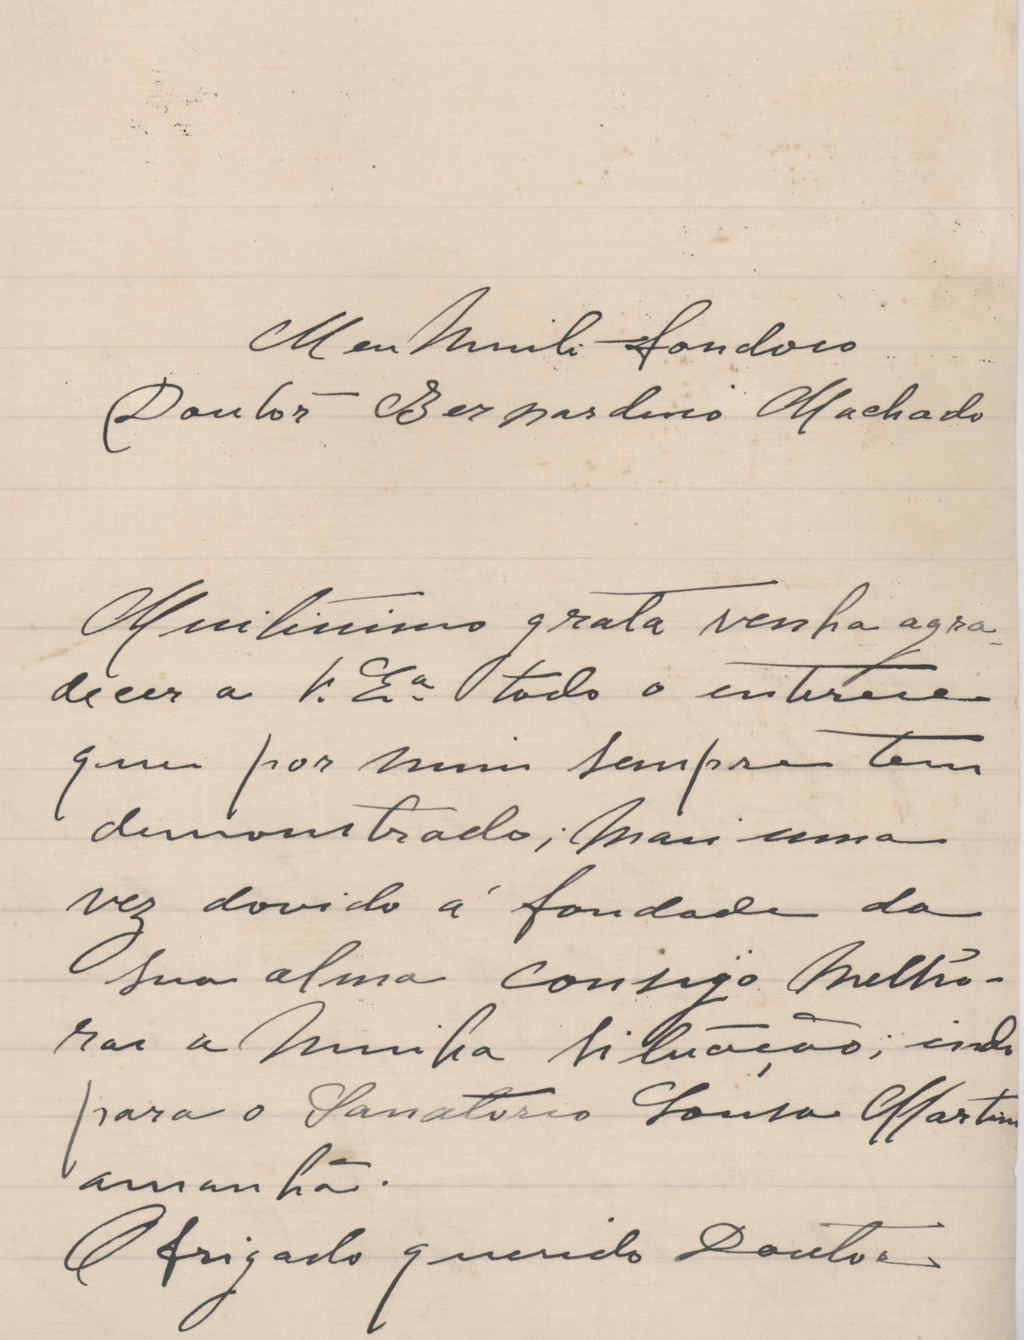 Meu Muito Bondoso
Doutor Bernardino Machado
Muitissimo grata venho agra-
decer a V. Ex.ª todo o interesse
que por mim sempre tem
demonstrado; mais uma
vez devido á bondade da
sua alma consigo melho-
rar a minha situação; indo
para o Sanatorio Sousa Martins
amanhã.
Obrigado querido Doutor